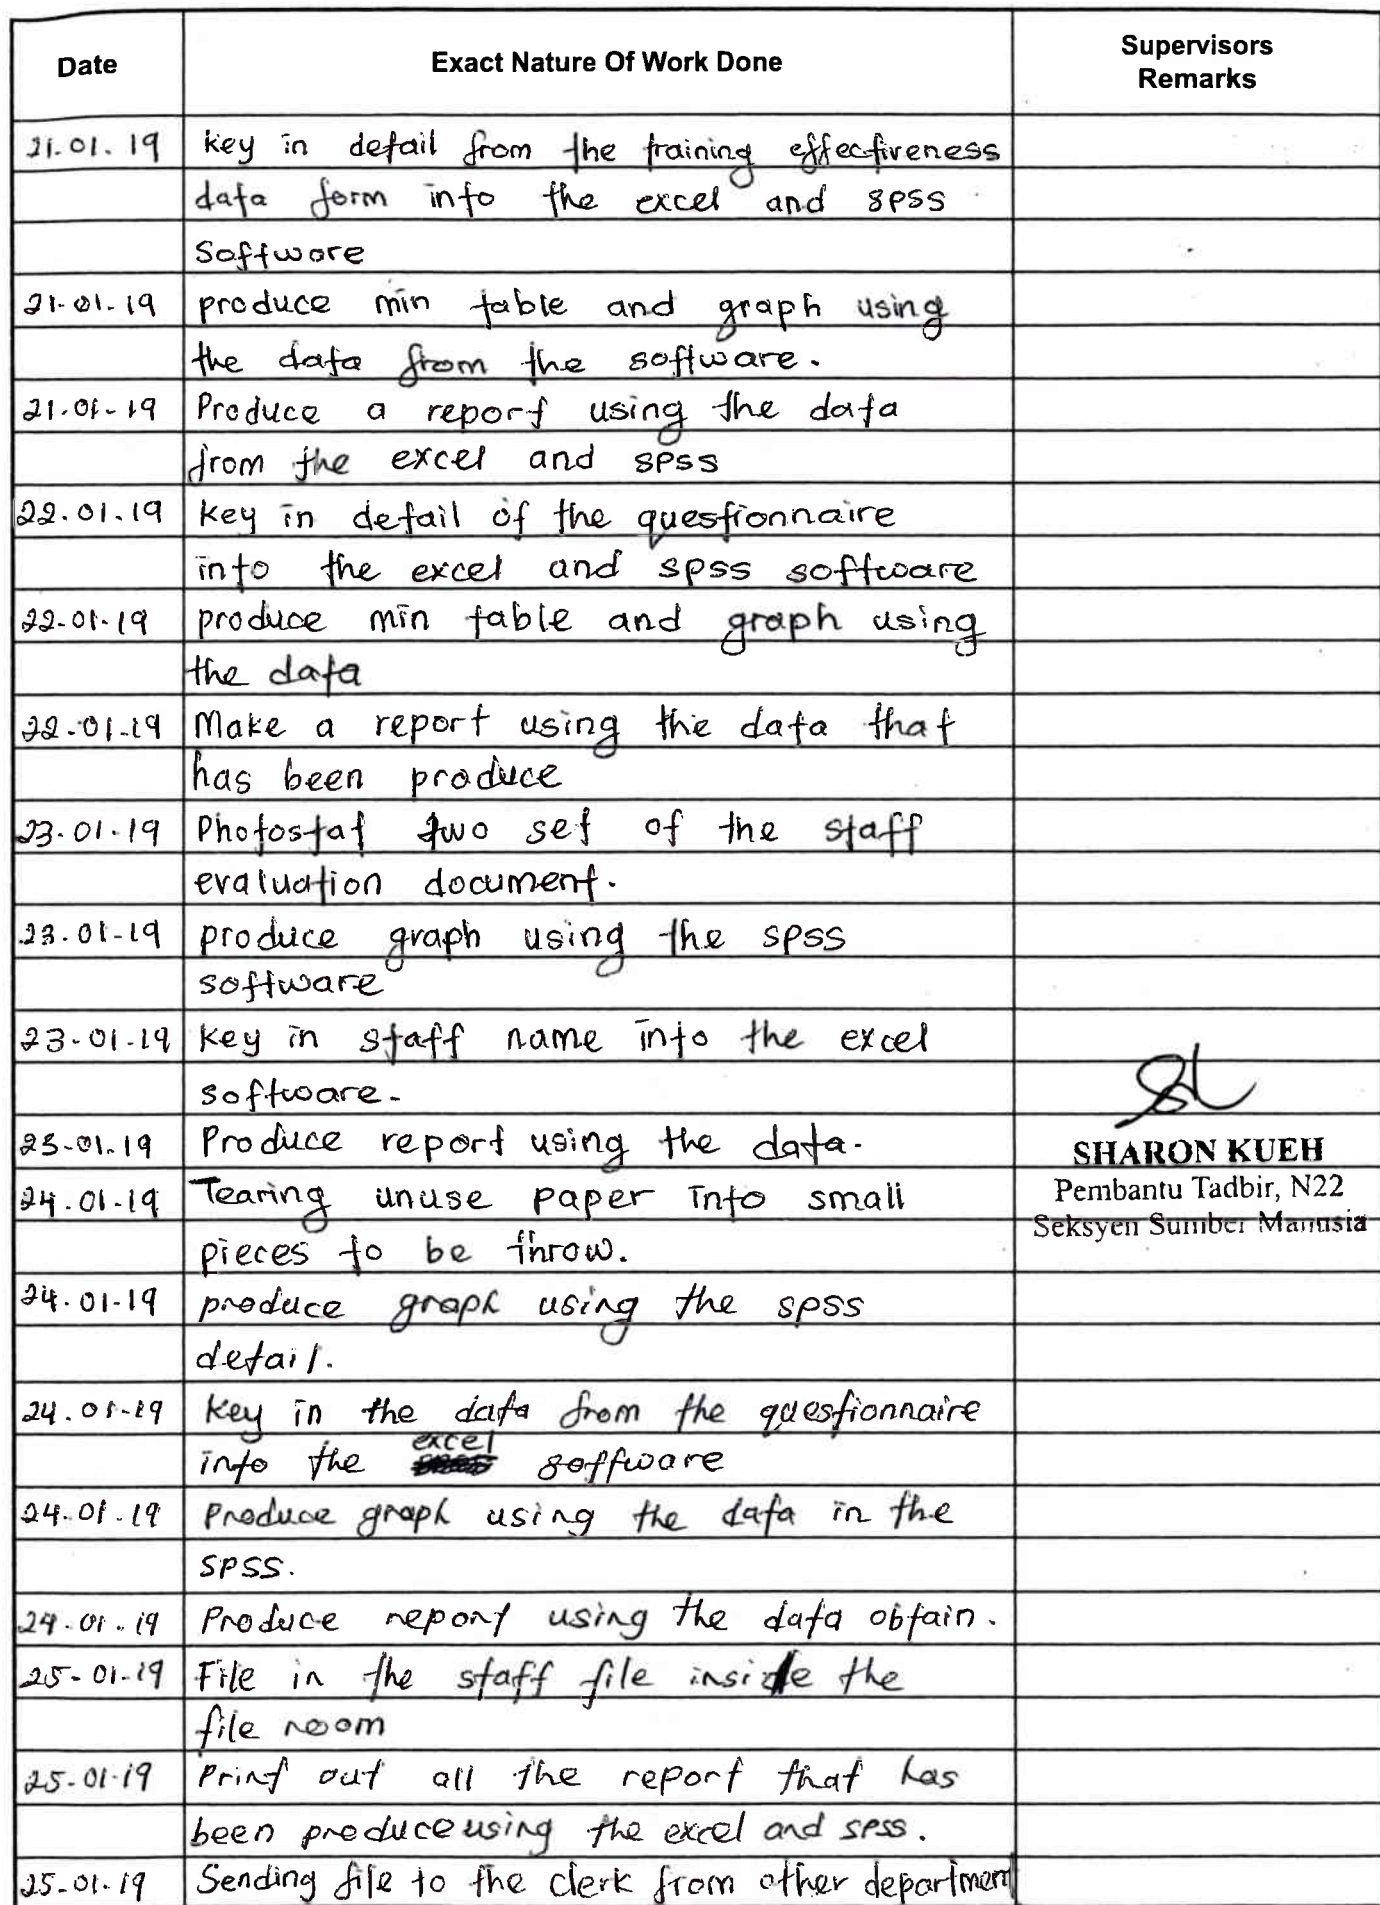 Date Exact Nature Of Work Done Supervisors
Remarks
21.01.19 key in detail from the training effectiveness
data form into the excel and spss
Software
21.01.19 produce min table and graph using
the data from the software.
21.01.19 Produce a report using the data
from the excel and spss
22.01.19 key in detail of the questionnaire
into the excel and spss software
22.01.19 produce min table and graph using
the data
22.01.19 Make a report using the data that
has been produce
23.01.19 Photostat two set of the staff
evaluation document.
23.01.19 produce graph using the spss
software
23.01.19 key in staff name into the excel
software.
23.01.19 Produce report using the data.
SHARON KUEH
24.01.19 Tearing unuse paper into small
Pembantu Tadbir, N22
pieces to be throw.
Seksyen Sumber Manusia
24.01.19 produce graph using the spss
detail.
24.01.19 key in the data from the questionnaire
into the excel software
24.01.19 Produce graph using the data in the
SPSS.
24.01.19 Produce report using the data obtain.
25.01.19 File in the staff file inside the
file room
25.01.19 Print out all the report that has
been produce using the excel and spss.
25.01.19 Sending file to the clerk from other department